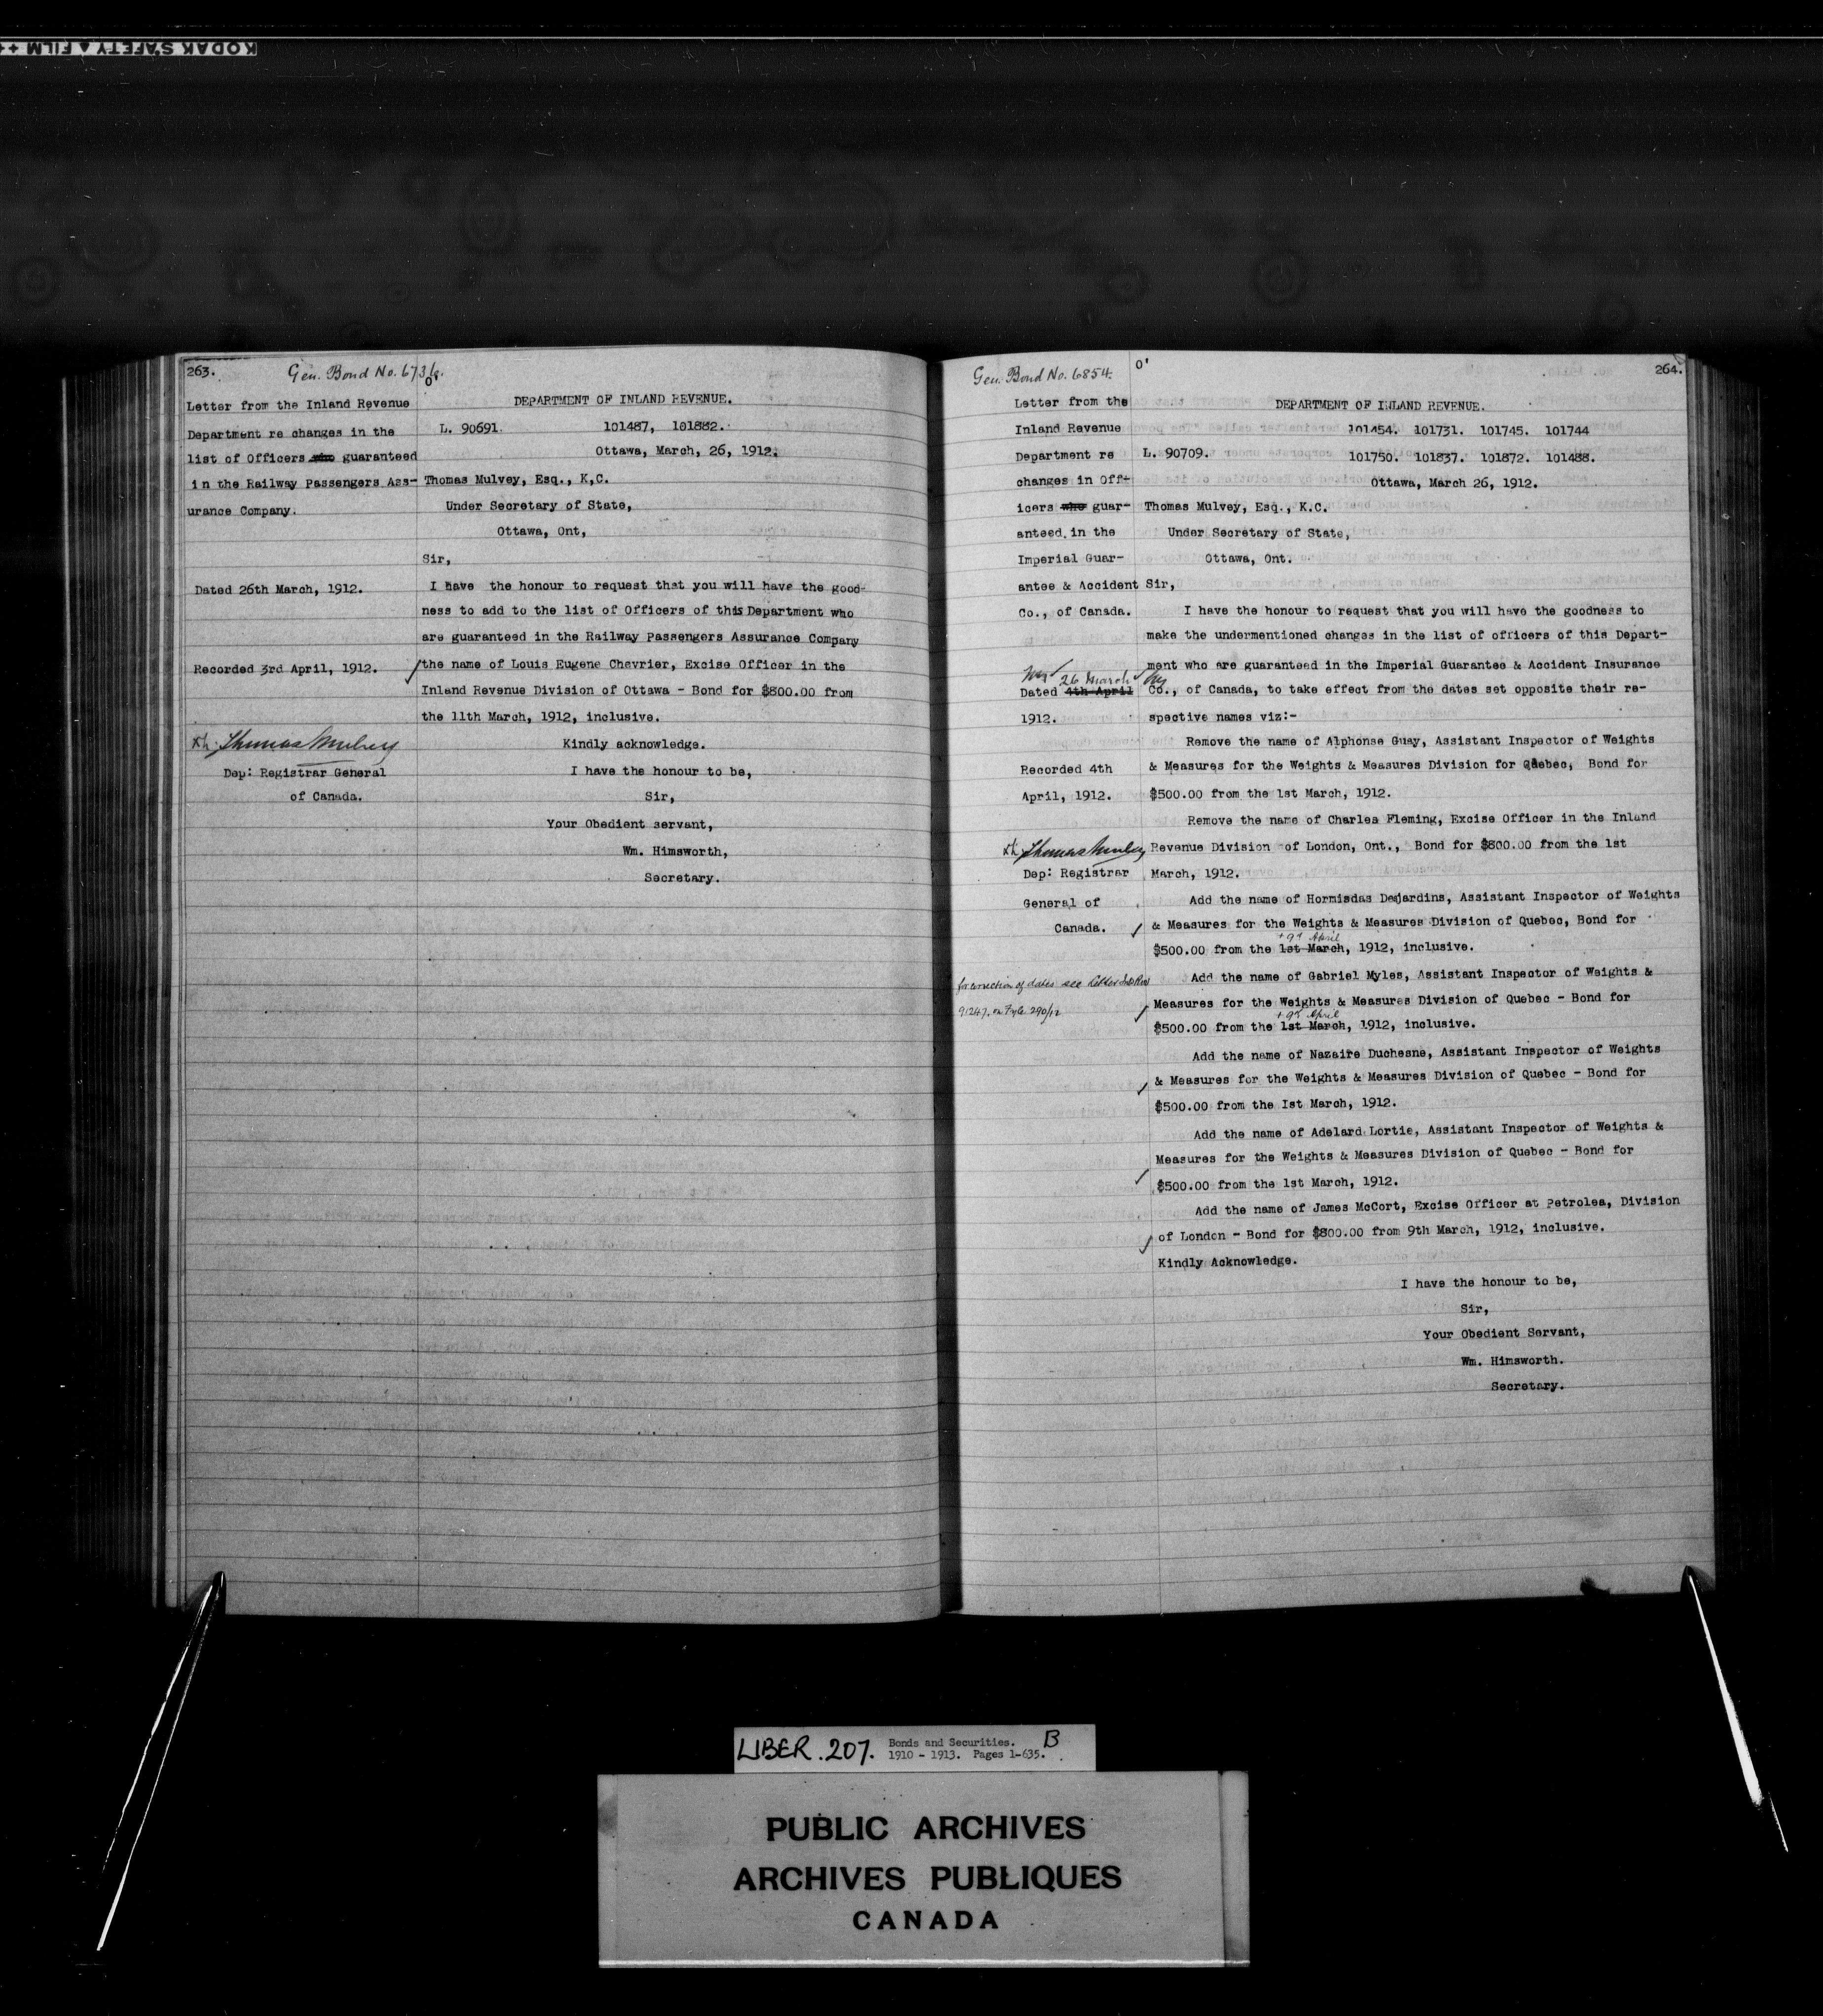 KODAK SAFETY ▲ FILM ++
263.
Gen. Bond No. 6736.
Letter from the Inland Revenue
Department re changes in the
list of Officers who guaranteed
in the Railway Passengers Ass-
urance Company.
Dated 26th March, 1912.
Recorded 3rd April, 1912.
Thomas Mulvey
Dep: Registrar General
of Canada.
DEPARTMENT OF INLAND REVENUE.
L. 90691. 101487, 101882.
Ottawa, March, 26, 1912.
Thomas Mulvey, Esq., K,C.
Under Secretary of State,
Ottawa, Ont,
Sir,
I have the honour to request that you will have the good-
ness to add to the list of Officers of this Department who
are guaranteed in the Railway Passengers Assurance Company
the name of Louis Eugene Chevrier, Excise Officer in the
Inland Revenue Division of Ottawa - Bond for $800.00 from
the 11th March, 1912, inclusive.
Kindly acknowledge.
I have the honour to be,
Sir,
Your Obedient servant,
Wm. Himsworth,
Secretary.
264.
Gen. Bond No. 6854.
Letter from the
Inland Revenue
Department re
changes in Off-
icers who guar-
anteed in the
Imperial Guar-
antee & Accident
Co., of Canada.
26 March
Dated 4th April
1912.
Recorded 4th
April, 1912.
Thomas Mulvey
Dep: Registrar
General of
Canada.
for correction of dates see letter Ind Rev
91247. on File 290/12
DEPARTMENT OF INLAND REVENUE.
101454. 101731. 101745. 101744
L. 90709. 101750. 101837. 101872. 101488.
Ottawa, March 26, 1912.
Thomas Mulvey, Esq., K.C.
Under Secretary of State,
Ottawa, Ont.
Sir,
I have the honour to request that you will have the goodness to
make the undermentioned changes in the list of officers of this Depart-
ment who are guaranteed in the Imperial Guarantee & Accident Insurance
Co., of Canada, to take effect from the dates set opposite their re-
spective names viz:-
Remove the name of Alphonse Guay, Assistant Inspector of Weights
& Measures for the Weights & Measures Division for Quebec, Bond for
$500.00 from the 1st March, 1912.
Remove the name of Charles Fleming, Excise Officer in the Inland
Revenue Division of London, Ont., Bond for $800.00 from the 1st
March, 1912.
Add the name of Hormisdas Desjardins, Assistant Inspector of Weights
& Measures for the Weights & Measures Division of Quebec, Bond for
April
$500.00 from the 1st March, 1912, inclusive.
Add the name of Gabriel Myles, Assistant Inspector of Weights &
Measures for the Weights & Measures Division of Quebec - Bond for
April
$500.00 from the 1st March, 1912, inclusive.
Add the name of Nazaire Duchesne, Assistant Inspector of Weights
& Measures for the Weights & Measures Division of Quebec - Bond for
$500.00 from the Ist March, 1912.
Add the name of Adelard Lortie, Assistant Inspector of Weights &
Measures for the Weights & Measures Division of Quebec - Bond for
$500.00 from the 1st March, 1912.
Add the name of James McCort, Excise Officer at Petrolea, Division
of London - Bond for $800.00 from 9th March, 1912, inclusive.
Kindly Acknowledge.
I have the honour to be,
Sir,
Your Obedient Servant,
Wm. Himsworth.
Secretary.
LIBER.207. Bonds and Securities. B
1910 - 1913. Pages 1-635.
PUBLIC ARCHIVES
ARCHIVES PUBLIQUES
CANADA